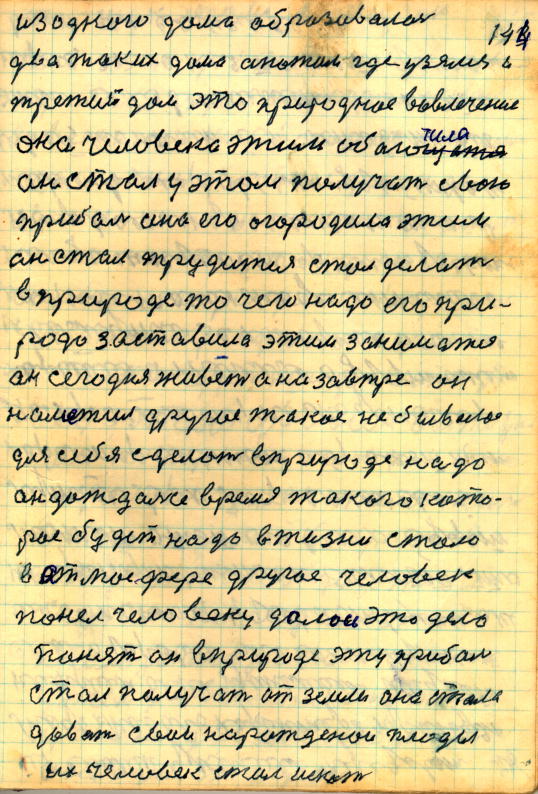 144
из одного дома образовалоя
два таких дома апотом где узялся и
третий дом это природное вовлечение
она человека этим обагатила
он стал у этом получат свою
прибал она его огородила этим
он стал трудится стал делат
в природе то чего надо его при-
рода заставила этим заниматя
он сегодня живет а на завтре он
наметил другое такое не бывалое
для себя сделат в природе надо
он дождалсе время такого кото-
рое будит надо в жизни стало
в атмосфере другое человек
понел человеку далои это дело
понят он в природе эту прибал
стал получат от земли она стала
дават свои нарожденои плоды
их человек стал искат